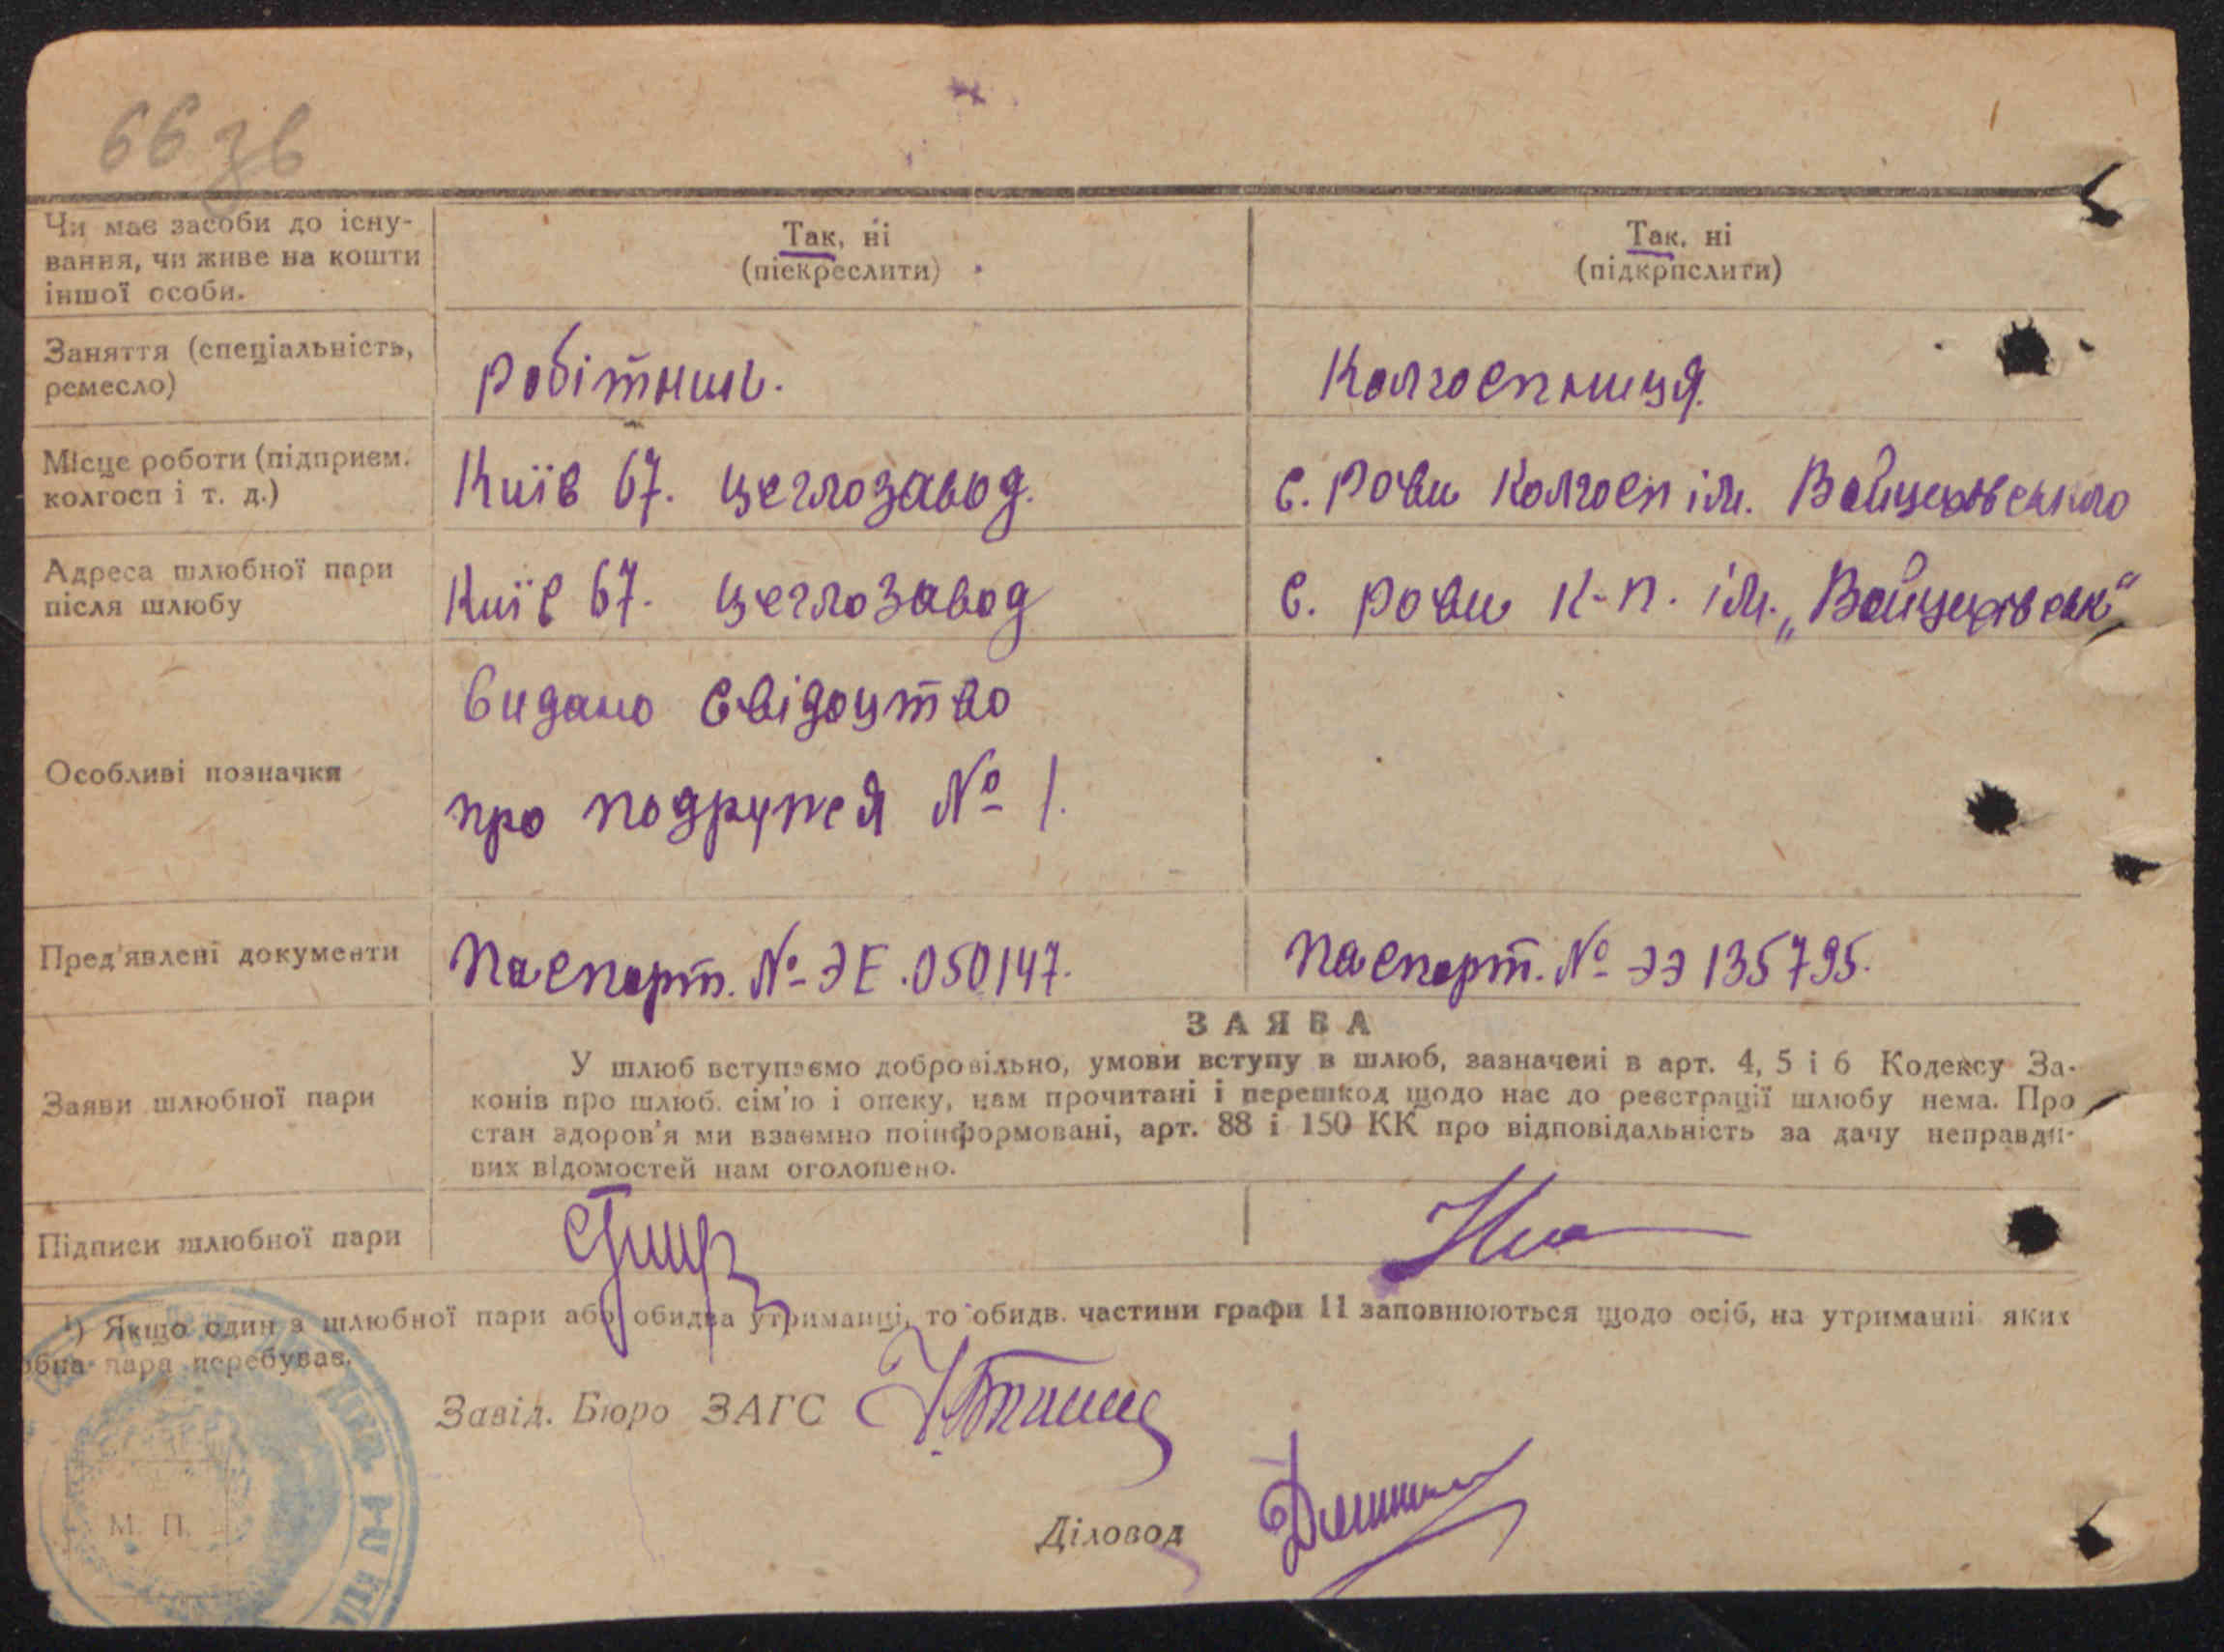 66 зв
Чи має засоби до існу-
вання, чи живе на кошти
іншої особи.
Так, ні
(піскреслити)
Так, ні
(підкрпслити)
Заняття (спеціальність,
ремесло)
робітник.
Колгоспниця.
Місце роботи (підприєм.
колгосп і т. д.)
Київ 67. цеглозавод.
с. Рови Колгосп ім. Войцехівського
Адреса шлюбної пари
після шлюбу
Київ 67. цеглозавод
с. Рови к-п. ім. „Войцехівськ"
Особливі позначки
Видано свідоцтво
про подружся № 1.
Пред'явлені документи
Паспорт. № ЭЕ.050147.
Паспорт. № ЭЭ 135795.
ЗАЯВА
Заяви шлюбної пари
У шлюб вступаємо добровільно, умови вступу в шлюб, зазначені в арт. 4, 5 і 6 Кодексу За-
конів про шлюб. сім'ю і опеку, нам прочитані і перешкод щодо нас до реєстрації шлюбу нема. Про
стан здоров'я ми взаємно поінформовані, арт. 88 і 150 КК про відповідальність за дачу неправди-
вих відомостей нам оголошено.
Підписи шлюбної пари
¹) Якщо один з шлюбної пари або обидва утриманці, то обидв. частини графи 11 заповнюються щодо осіб, на утриманні яких
пара перебуває.
Завід. Бюро ЗАГС
М. П.
Діловод